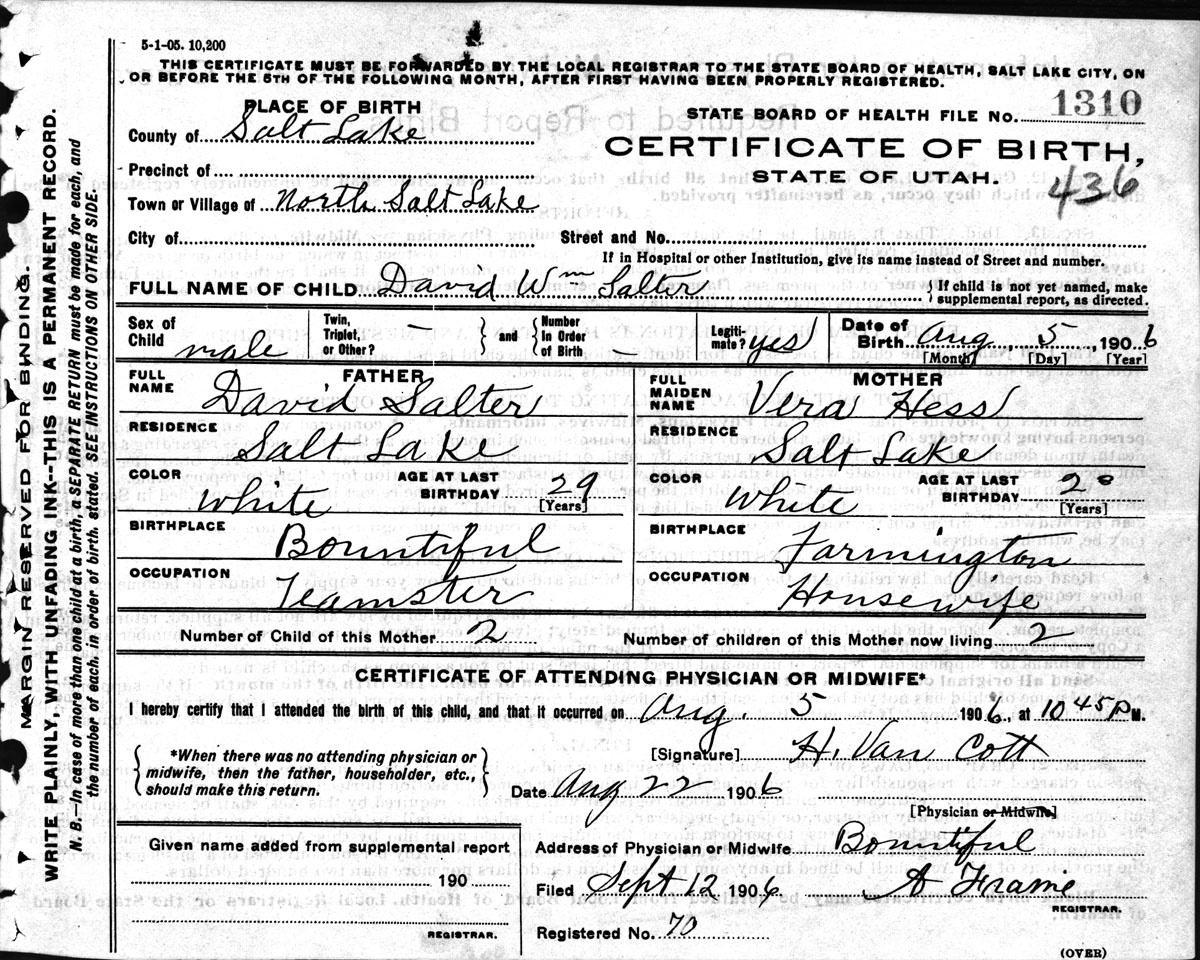 5-1-05. 10,200
THIS CERTIFICATE MUST BE FORWARDED BY THE LOCAL REGISTRAR TO THE STATE BOARD OF HEALTH, SALT LAKE CITY, ON
OR BEFORE THE 5TH OF THE FOLLOWING MONTH, AFTER FIRST HAVING BEEN PROPERLY REGISTERED.
PLACE OF BIRTH
STATE BOARD OF HEALTH FILE No. 1310
County of Salt Lake
CERTIFICATE OF BIRTH,
Precinct of
STATE OF UTAH.
436
Town or Village of North Salt Lake
City of Street and No.
If in Hospital or other Institution, give its name instead of Street and number.
FULL NAME OF CHILD David Wm Salter { If child is not yet named, make supplemental report, as directed.
Sex of Child male Twin, Triplet, or Other? — } and { Number in Order of Birth Legiti- mate? yes Date of Birth Aug, 5, 1906
[Month] [Day] [Year]
FATHER MOTHER
FULL NAME David Salter FULL MAIDEN NAME Vera Hess
RESIDENCE Salt Lake RESIDENCE Salt Lake
COLOR White AGE AT LAST BIRTHDAY 29 [Years] COLOR White AGE AT LAST BIRTHDAY 20 [Years]
BIRTHPLACE Bountiful BIRTHPLACE Farmington
OCCUPATION Teamster OCCUPATION Housewife
Number of Child of this Mother 2 Number of children of this Mother now living 2
CERTIFICATE OF ATTENDING PHYSICIAN OR MIDWIFE*
I hereby certify that I attended the birth of this child, and that it occurred on Aug. 5 1906, at 10 45 P M.
{ *When there was no attending physician or midwife, then the father, householder, etc., should make this return. }
[Signature] H. Van Cott
Date Aug 22 1906
[Physician or Midwife]
Given name added from supplemental report
Address of Physician or Midwife Bountiful
190
Filed Sept 12 1906 A Frame
REGISTRAR.
REGISTRAR.
Registered No. 70
(OVER)
MARGIN RESERVED FOR BINDING.
WRITE PLAINLY, WITH UNFADING INK--THIS IS A PERMANENT RECORD.
N. B.—In case of more than one child at a birth, a SEPARATE RETURN must be made for each, and
the number of each, in order of birth, stated. SEE INSTRUCTIONS ON OTHER SIDE.